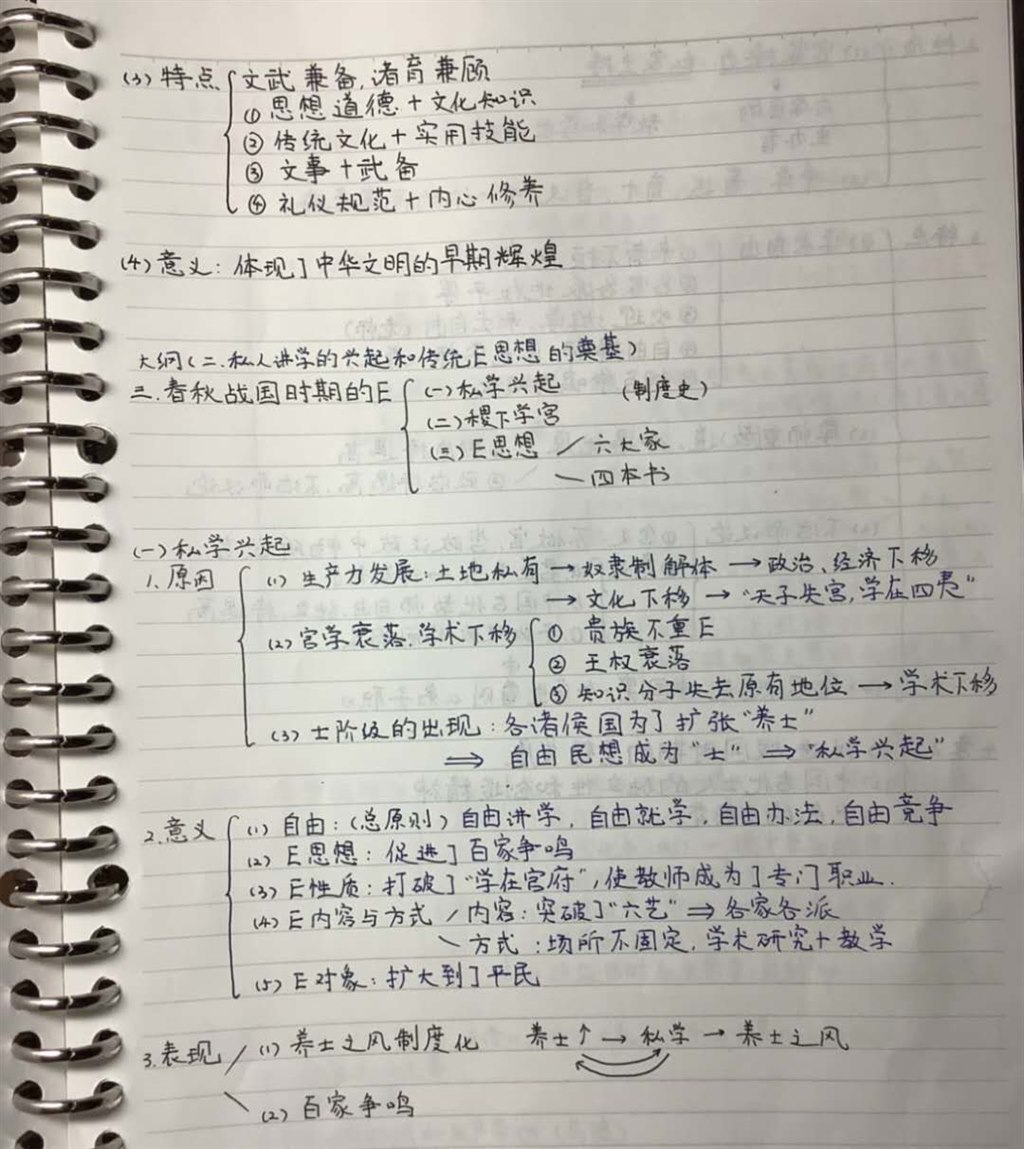 (3) 特点 文武兼备,诸育兼顾
① 思想道德+文化知识
② 传统文化+实用技能
③ 文事+武备
④ 礼仪规范+内心修养
(4) 意义:体现了中华文明的早期辉煌
大纲(二.私人讲学的兴起和传统E思想的奠基)
三.春秋战国时期的E (一)私学兴起 (制度史)
(二)稷下学宫
(三)E思想 / 六大家
\ 四本书
(一)私学兴起
1.原因 (1) 生产力发展:土地私有→奴隶制解体→政治、经济下移
→文化下移→"天子失官,学在四夷"
(2) 官学衰落.学术下移 ① 贵族不重E
② 王权衰落
③ 知识分子失去原有地位→学术下移
(3) 士阶级的出现:各诸侯国为了扩张"养士"
⇒ 自由民想成为"士" ⇒ "私学兴起"
2.意义 (1) 自由:(总原则)自由讲学,自由就学,自由办法,自由竞争
(2) E思想:促进了百家争鸣
(3) E性质:打破了"学在官府",使教师成为了专门职业.
(4) E内容与方式 / 内容:突破了"六艺"⇒各家各派
\ 方式:场所不固定,学术研究+教学
(5) E对象:扩大到了平民
3.表现 / (1) 养士之风制度化 养士↑→私学→养士之风
\ (2) 百家争鸣